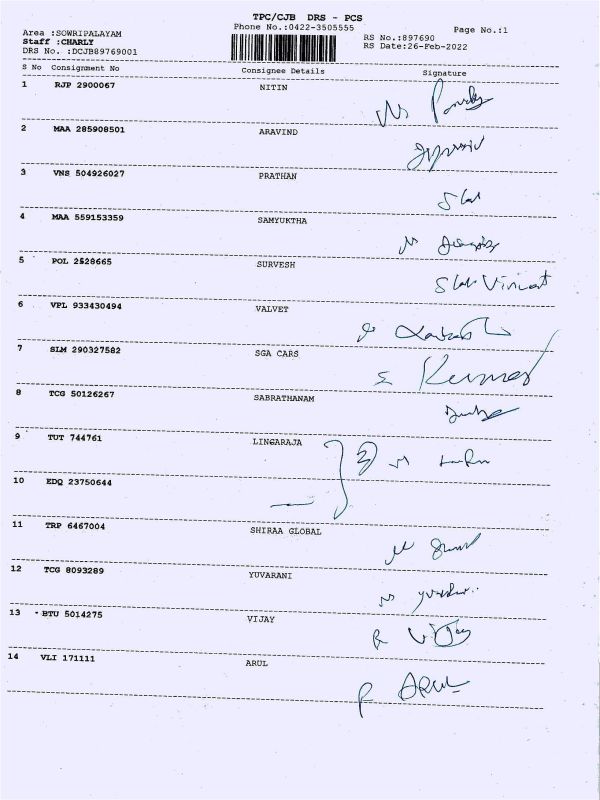 TPC/CJB DRS - PCS
Phone No.:0422-3505555
Page No.:1
Area :SOWRIPALAYAM
Staff :CHARLY
DRS No. :DCJB89769001
RS No.:897690
RS Date:26-Feb-2022
S No Consignment No Consignee Details Signature
1 RJP 2900067 NITIN
2 MAA 285908501 ARAVIND
3 VNS 504926027 PRATHAN
4 MAA 559153359 SAMYUKTHA
5 POL 2528665 SURVESH
6 VPL 933430494 VALVET
7 SLM 290327582 SGA CARS Kumar
8 TCG 50126267 SABRATHANAM
9 TUT 744761 LINGARAJA
10 EDQ 23750644
11 TRP 6467004 SHIRAA GLOBAL
12 TCG 8093289 YUVARANI
13 BTU 5014275 VIJAY R Vijay
14 VLI 171111 ARUL P ARUL